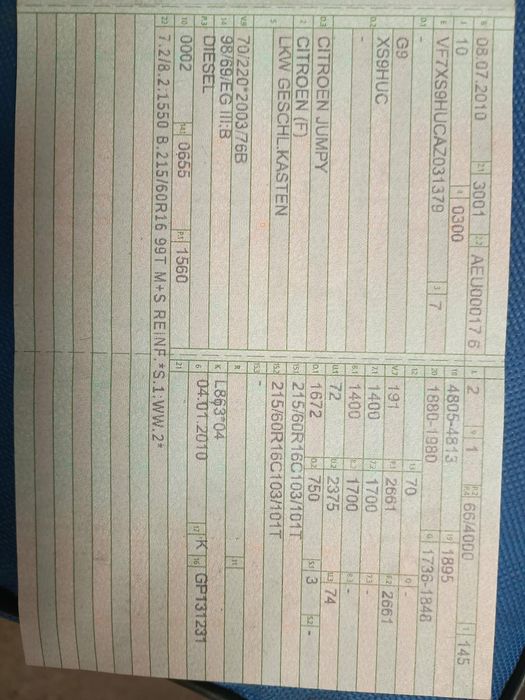 B 08.07.2010 2.1 3001 2.2 AEU00017 6
J 10 4 0300
E VF7XS9HUCAZ031379 3 7
D.1 -
D.2 G9
XS9HUC
-
D.3 CITROEN JUMPY
2 CITROEN (F)
5 LKW GESCHL.KASTEN
V.9 70/220*2003/76B
14 98/69/EG III;B
P.3 DIESEL
10 0002 14.1 0655 P.1 1560
22 7.2/8.2:1550 B.215/60R16 99T M+S REINF.*S.1:WW.2*
L 2 9 1 P.2 P.4 66/4000 T 145
18 4805-4813 19 1895
20 1880-1980 G 1736-1846
12 - 13 70 Q -
V.7 191 F.1 2661 F.2 2661
7.1 1400 7.2 1700 7.3 -
8.1 1400 8.2 1700 8.3 -
U.1 72 U.2 2375 U.3 74
O.1 1672 O.2 750 S.1 3 S.2 -
15.1 215/60R16C103/101T
15.2 215/60R16C103/101T
15.3 -
R 11
K L863*04
6 04.01.2010 17 K 16 GP131231
21